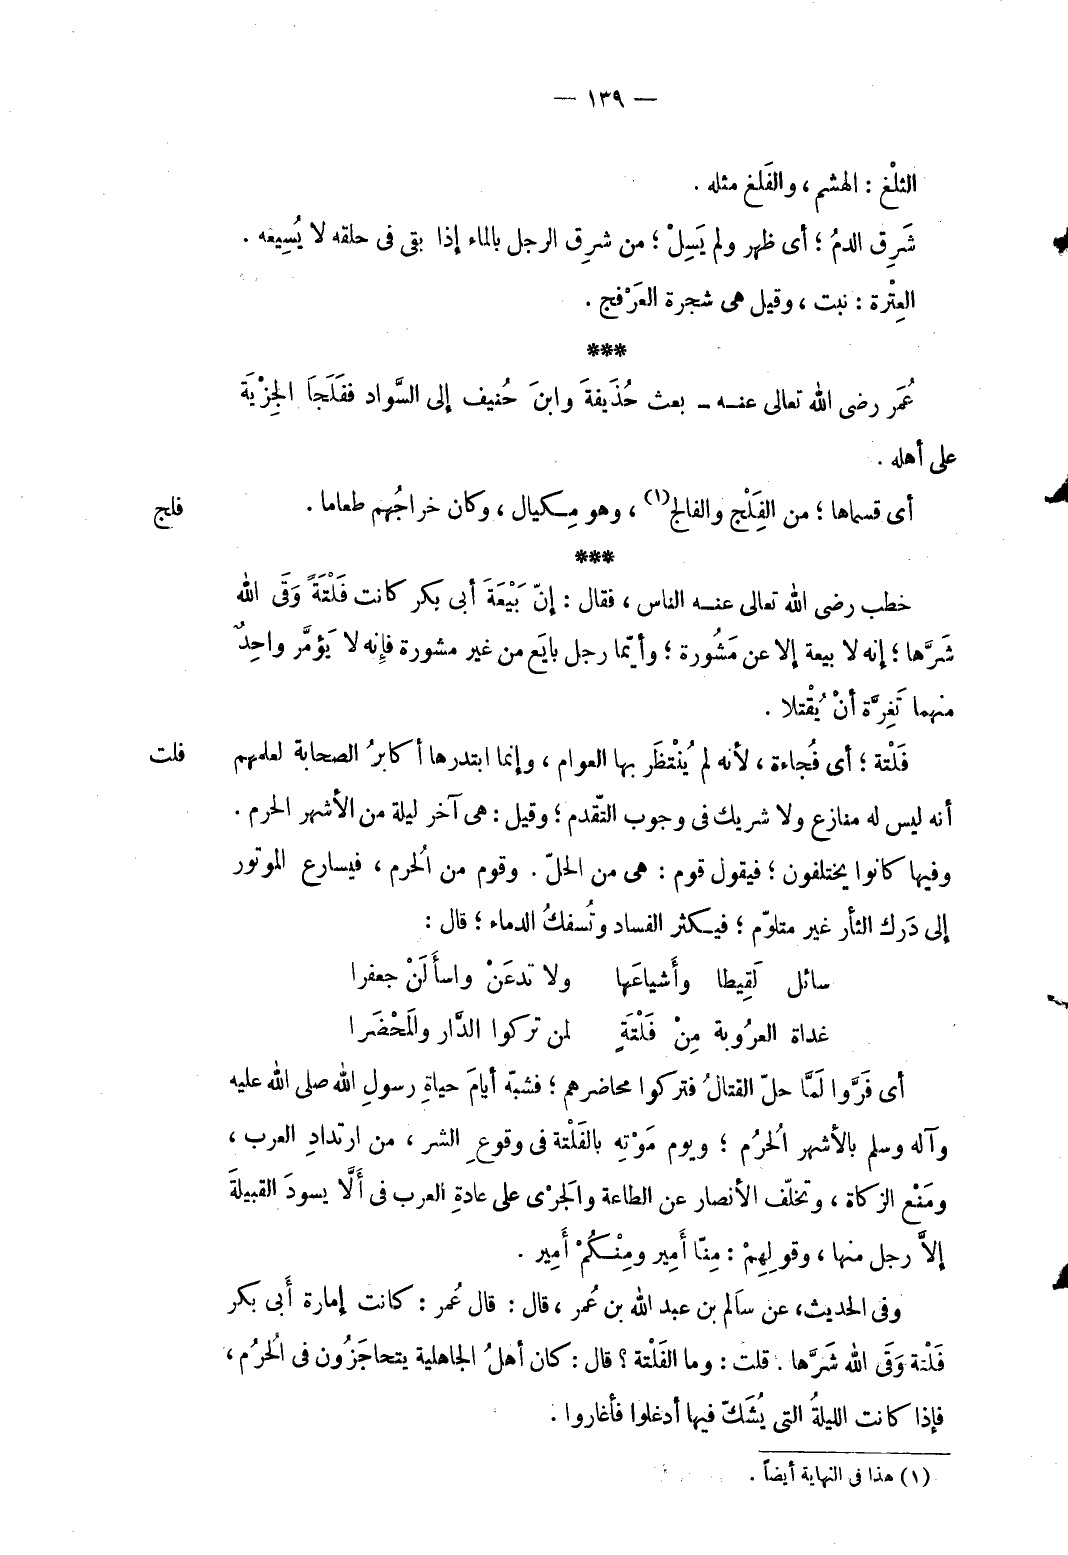 — ١٣٩ —
الثلْغ : الهشم ، والفَلغ مثله .
شَرِق الدمُ ؛ أى ظهر ولم يَسِلْ ؛ من شرِق الرجل بالماء إذا بقى فى حلقه لا يُسِيغه .
العِتْرة : نبت ، وقيل هى شجرة العَرْفج .
***
عُمَر رضى الله تعالى عنه – بعث حُذَيفةَ وابنَ حُنيف إلى السَّواد ففَلَجَا الجِزْيَة
على أهله .
أى قسماها ؛ من الفَِلْج والفالج(١) ، وهو مِكيال ، وكان خراجُهم طعاما .
فلج
***
خطب رضى الله تعالى عنه الناس ، فقال : إنّ بَيْعَةَ أبى بكر كانت فَلْتَةً وَقَى الله
شَرَّها ؛ إنه لا بيعة إلا عن مَشُورة ؛ وأيّما رجل بايَع من غير مشورة فإنه لا يَؤمَّر واحِدٌ
منهما تَغِرَّة أنْ يُقْتلا .
فَلْتة ؛ أى فُجاءة ، لأنه لم يُنْتظَر بها العوام ، وإنما ابتدرها أكابرُ الصحابة لعلمهم
فلت
أنه ليس له منازع ولا شريك فى وجوب التّقدم ؛ وقيل : هى آخر ليلة من الأشهر الحرم .
وفيها كانوا يختلفون ؛ فيقول قوم : هى من الحلّ . وقوم من الُحرم ، فيسارع الموتور
إلى دَرك الثأر غير متلوّم ؛ فيكثر الفساد وتُسفكُ الدماء ؛ قال :
سائل لَقِيطا وأَشياعَها ولا تدعَنْ واسأَلَنْ جعفرا
غداة العرُوبة مِنْ فَلْتَةٍ لمن تركوا الدَّار والَمحْضَرا
أى فَرَّوا لَمَّا حلّ القتالُ فتركوا محاضرهم ؛ فشبّه أيامَ حياةِ رسولِ الله صلى الله عليه
وآله وسلم بالأشهر الُحرُم ؛ ويوم مَوْتِه بالفَلْتة فى وقوع الشر ، من ارتدادِ العرب ،
ومَنْع الزكاة ، وتخلّف الأنصار عن الطاعة والَجرْى على عادةِ العرب فى أَلَّا يسودَ القبيلةَ
إلاَّ رجل منها ، وقولِهِمْ : مِنّا أَمِير ومِنْكُمْ أَمِير .
وفى الحديث، عن سَالم بن عبد الله بن عُمر ، قال : قال عُمر : كانت إمارة أَبى بكر
فَلْتة وَقَى الله شَرَّها . قلت : وما الفَلْتة ؟ قال : كان أهلُ الجاهلية يتحاجَزُون فى الُحرُم ،
فإذا كانت الليلةُ التى يُشَكّ فيها أدغلوا فأغاروا .
(١) هذا فى النهاية أيضاً .